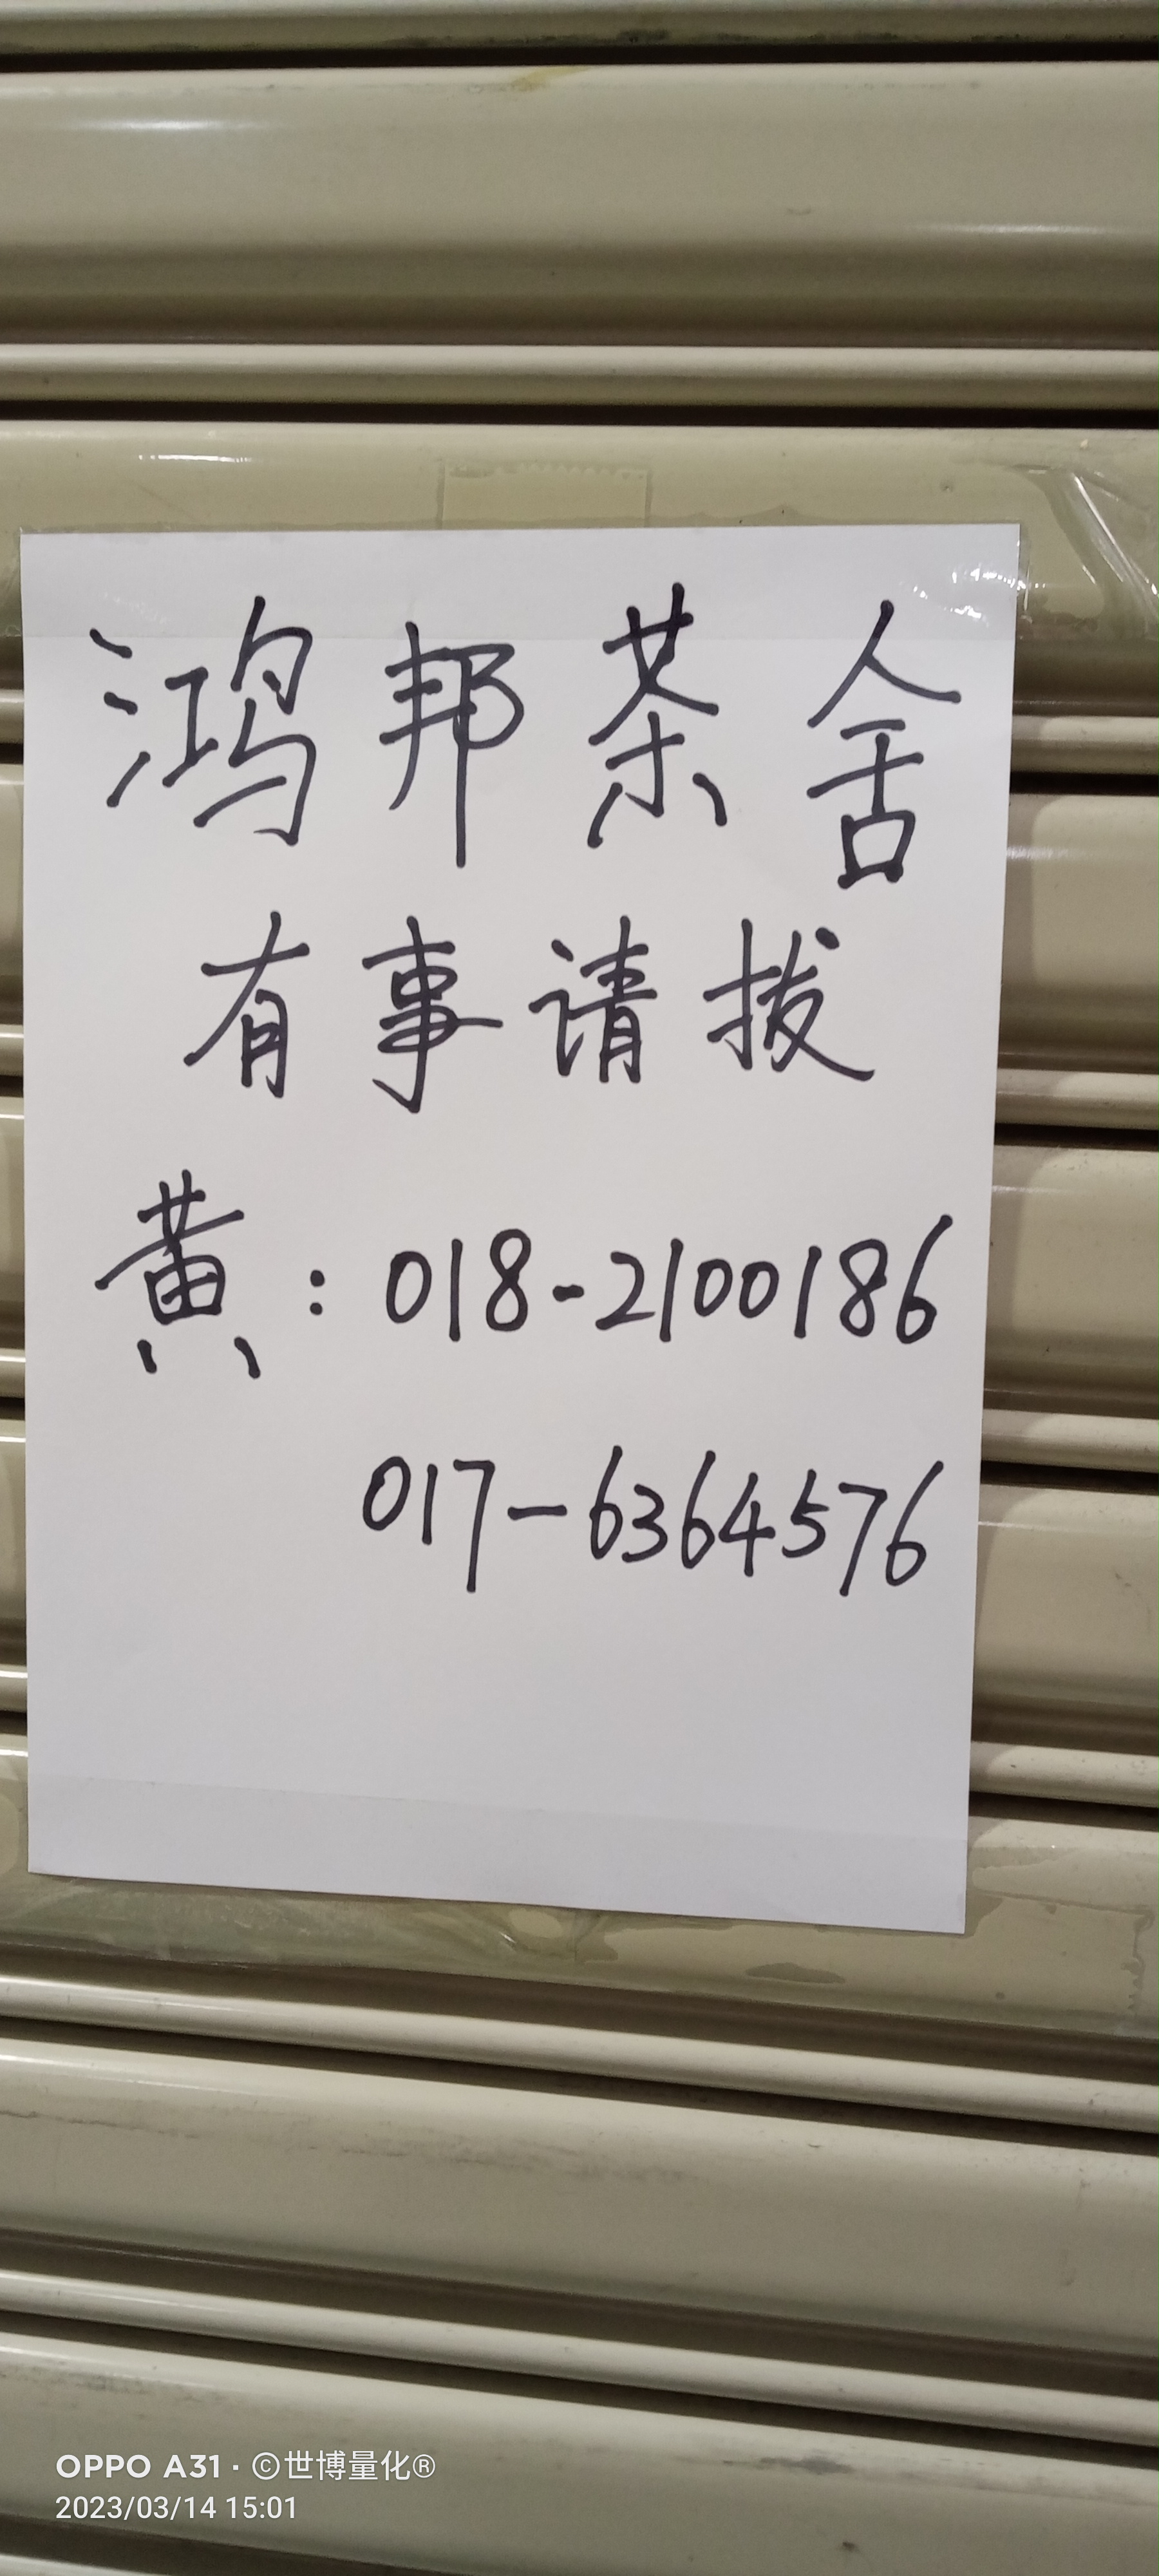 鸿邦茶舍
有事请拔
黄：018-2100186
017-6364576
OPPO A31 · ©世博量化®
2023/03/14 15:01